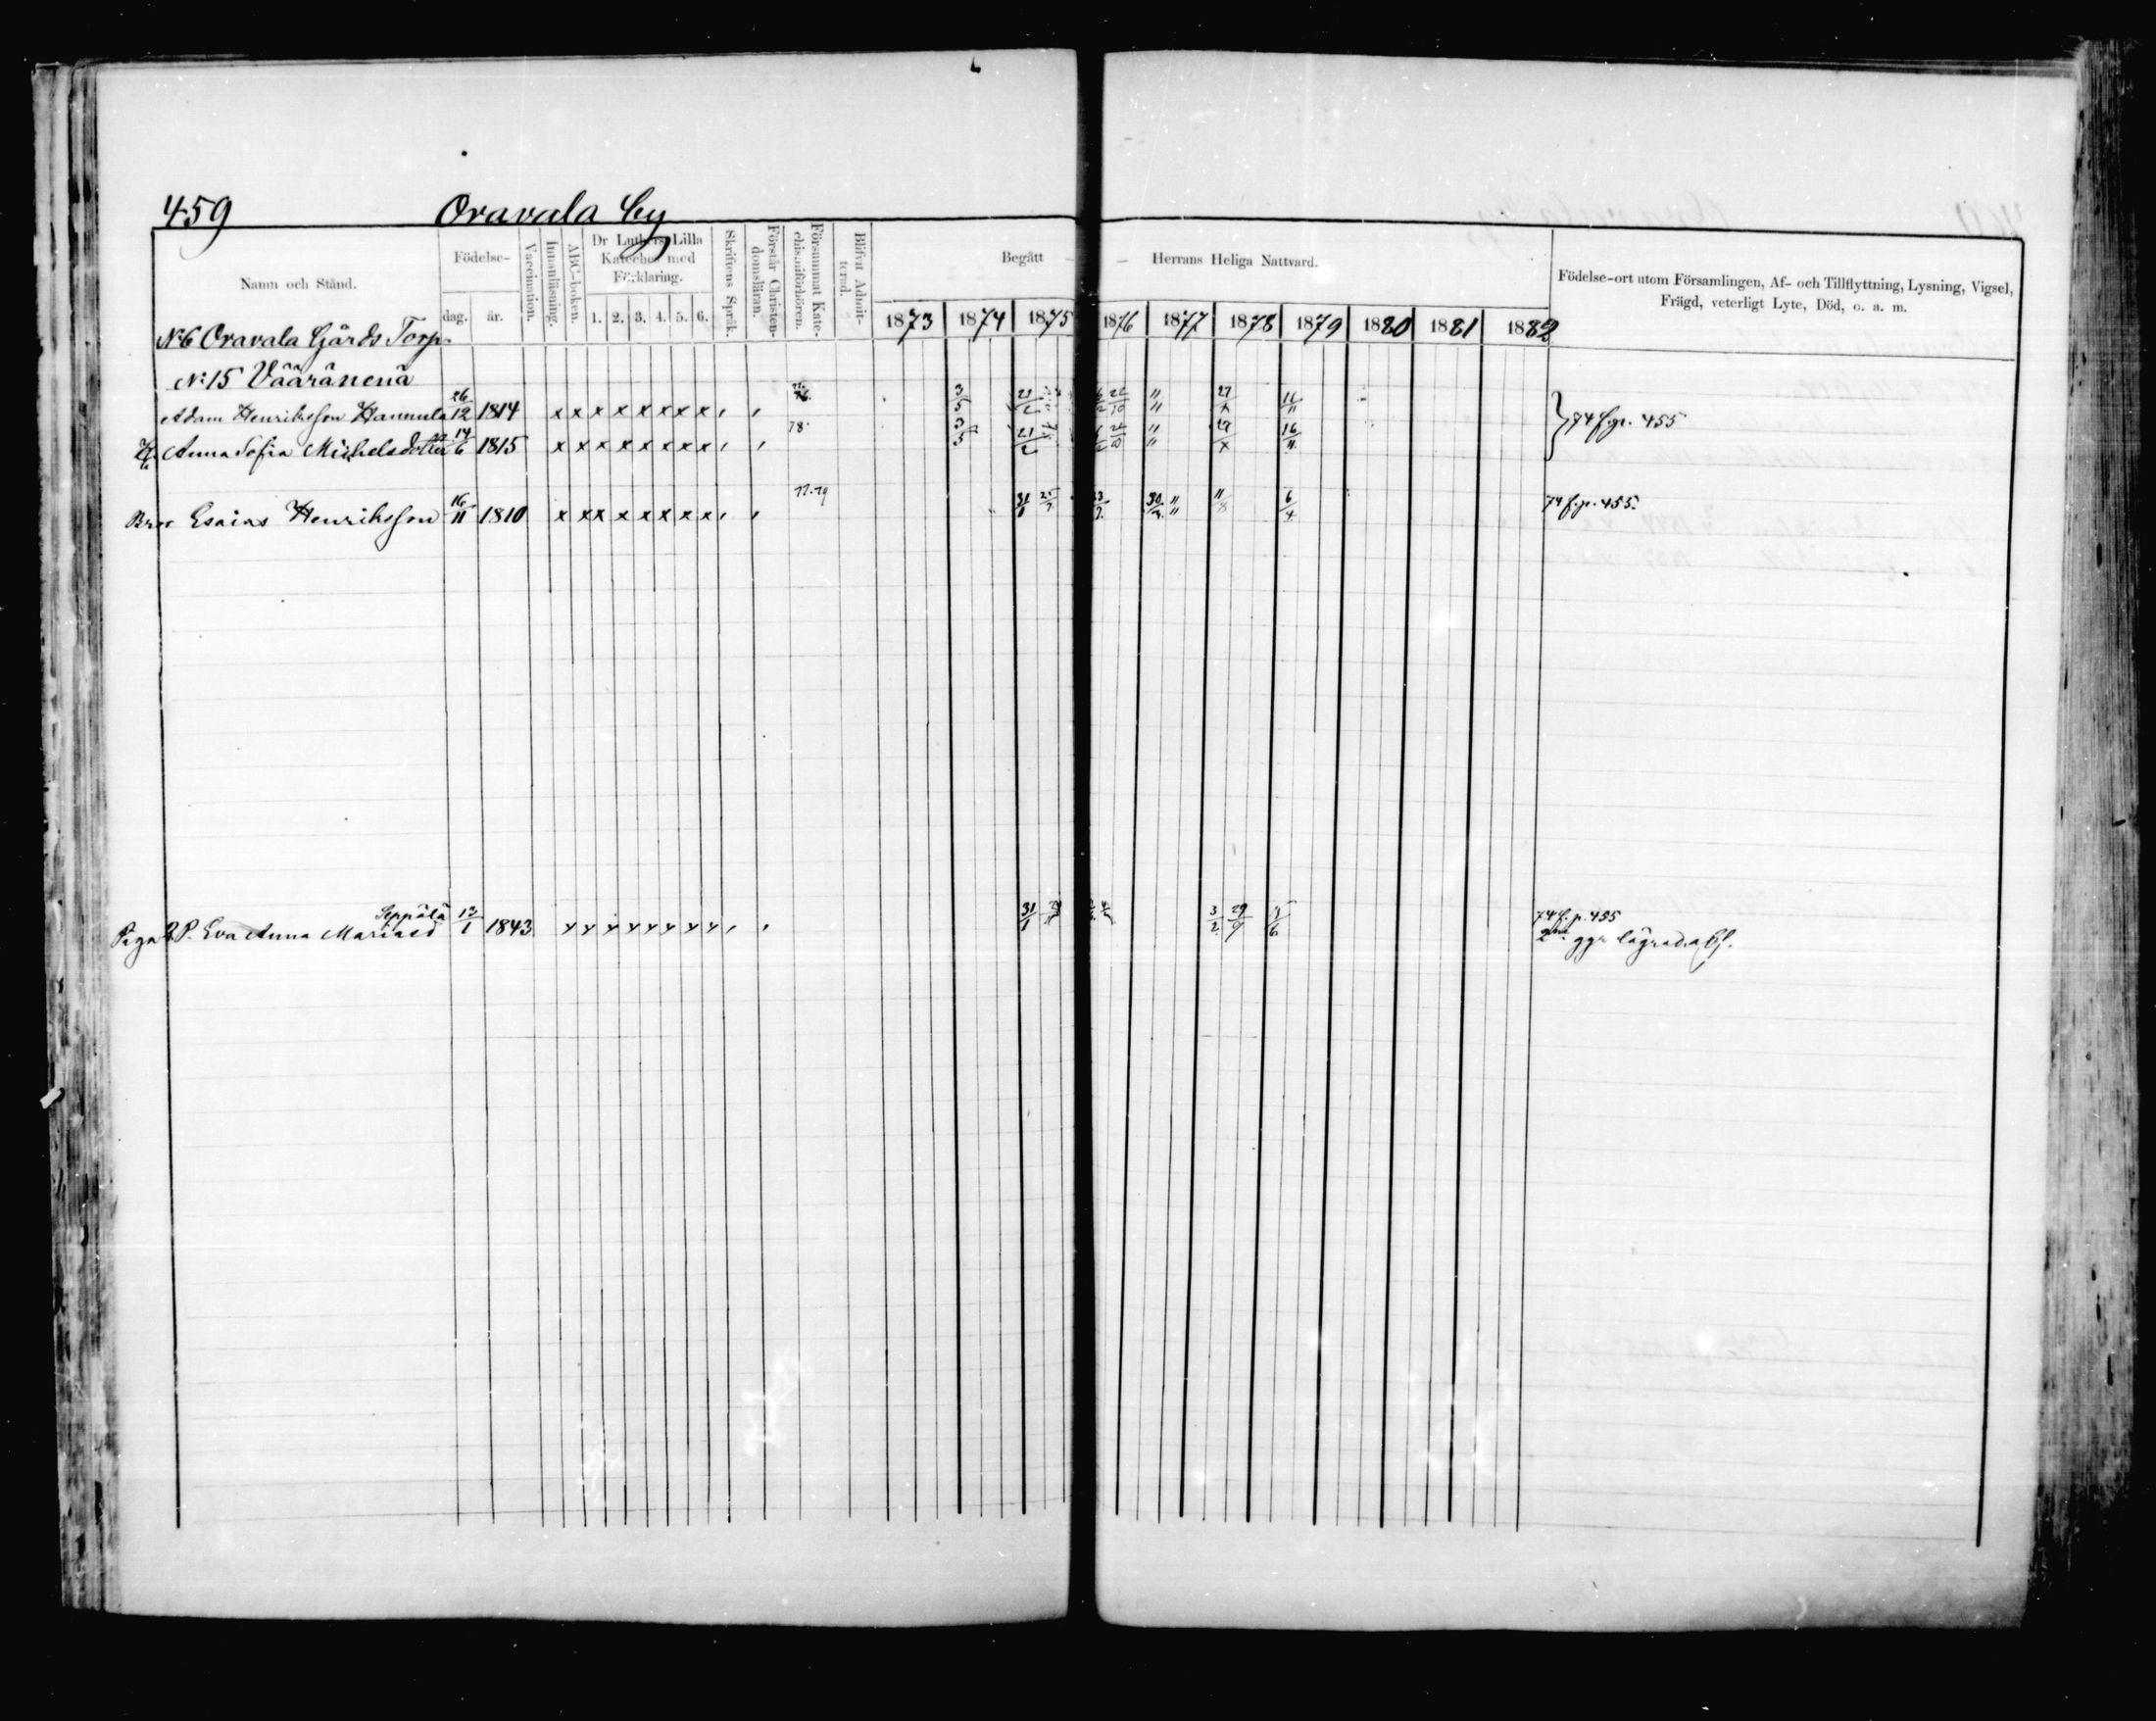 459 Oravala by
Namn och Stånd.
Födelse-
dag. år.
Vaccination.
Innanläsning.
ABC-boken.
Dr Luthers Lilla
Kateches med
Förklaring.
1. 2. 3. 4. 5. 6.
Skriftens Språk.
Förstår Christen-
domsläran.
Försummat Kate-
chismiförhören.
Blifvit Admit-
terad.
Begått Herrans Heliga Nattvard.
1873 1874 1875 1876 1877 1878 1879 1880 1881 1882
Födelse-ort utom Församlingen, Af- och Tillflyttning, Lysning, Vigsel,
Frägd, veterligt Lyte, Död, o. a. m.
No 6 Oravala Gårds Torp
No: 15 Vääränenä
Adam Henriksson Hannula 26/12 1814 x x x x x x x x 3/5 21/2 " 27/x 16/11 } 74 f. p. 455
H. Anna Sofia Michelsdotter 14/6 1815 x x x x x x x x 78 3/5 21/2 " 27/x 16/11
Bror Esaias Henriksson 16/11 1810 x x x x x x x x 77. 79 31/1 " 11/8 6/4 74 f. p. 455.
Seppälä
Piga Eva Anna Mariasd 13/1 1843 x x x x x x x x 31/1 3/2 29/9 74 f. p. 455
2ne ggr lägrad